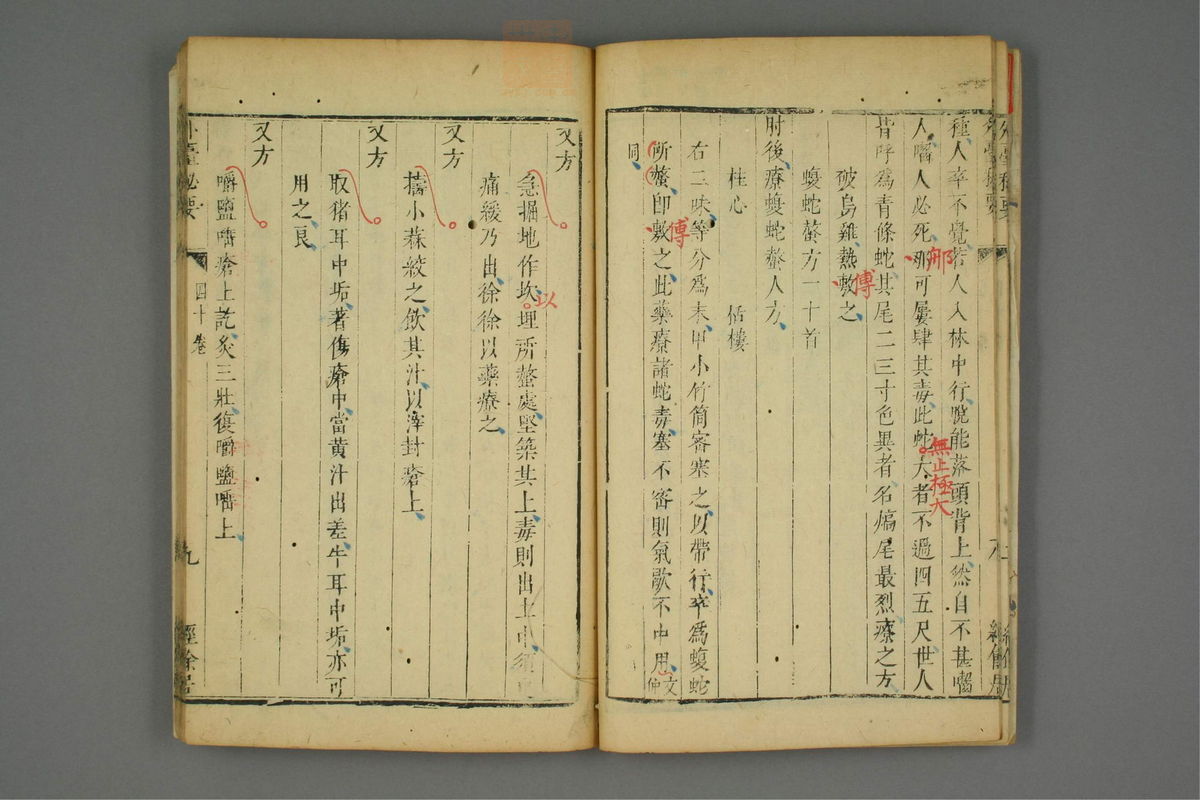 種人卒不覺若人入林中行脫能落頭背上然自不甚囓
人囓人必死那可屢肆其毒此蛇大者不過四五尺世人
那
無止極大
皆呼為青條蛇其尾二三寸色異者名熇尾最烈療之方
破烏雞熱敷之
傅
蝮蛇螫方一十首
肘後療蝮蛇螫人方
桂心 栝樓
右二味等分為末用小竹筒密塞之以帶行卒為蝮蛇
所螫即敷之此藥療諸蛇毒塞不密則氣歇不中用文仲
傅
同
又方
急掘地作坎埋所螫處堅築其上毒則出土中須
以
痛緩乃出徐徐以藥療之
又方
擣小蒜絞之飲其汁以滓封瘡上
又方
取猪耳中垢著傷瘡中當黃汁出差牛耳中垢亦可
用之良
又方
嚼鹽唾瘡上訖灸三壯復嚼鹽唾上
外臺秘要 四十卷 九 經餘居